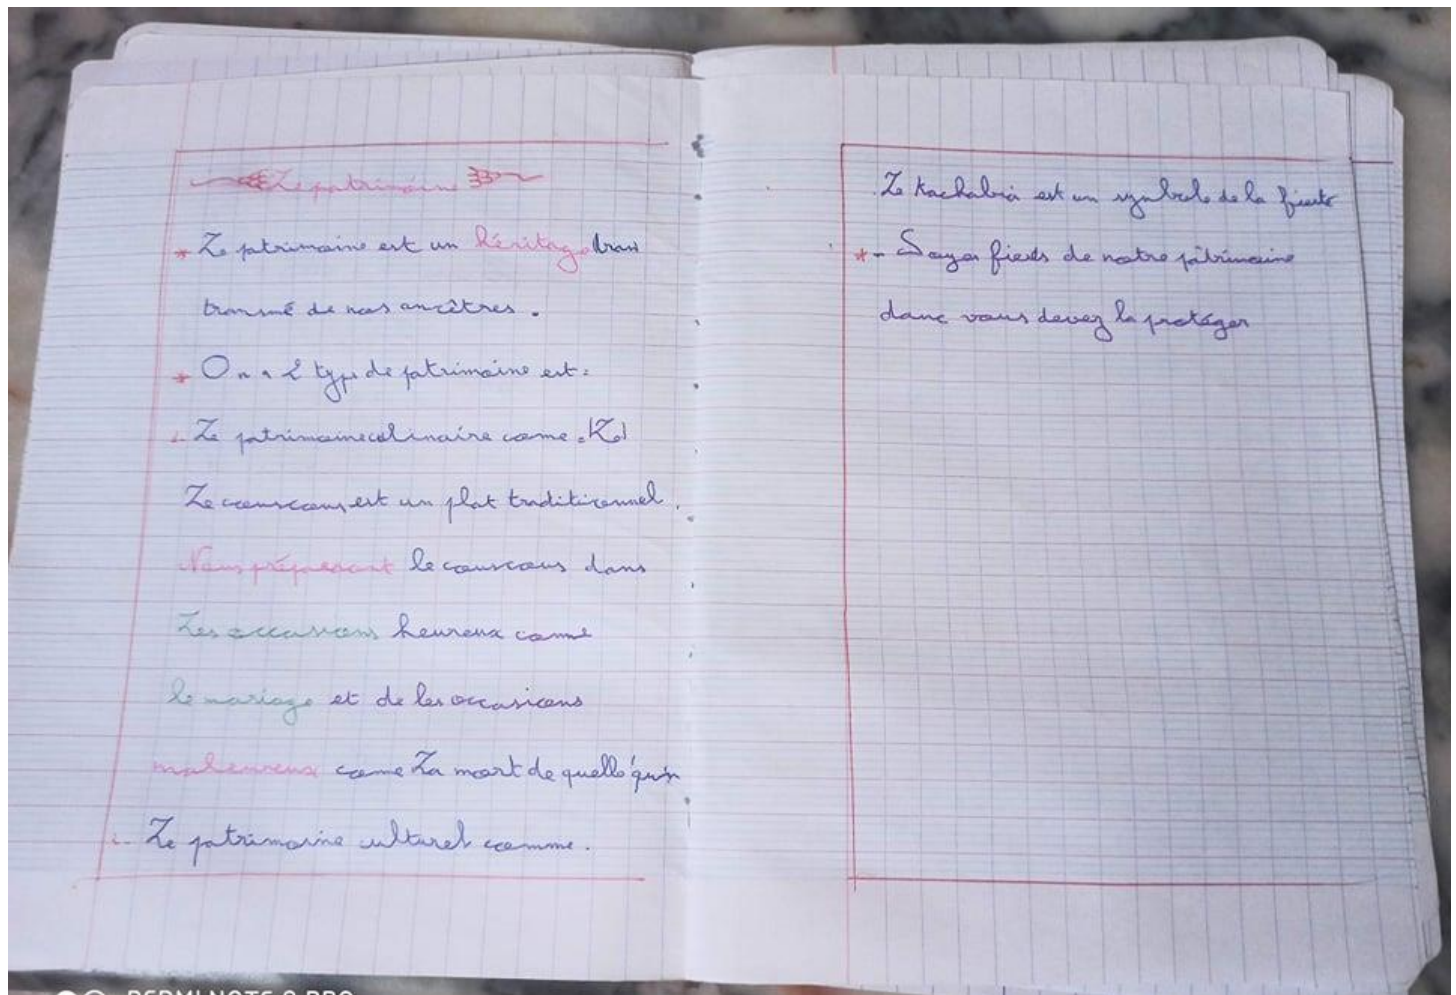 Le patrimoine
* Le patrimoine est un héritage tran
transmé de nos ancêtres.
* On a 2 type de patrimoine est:
- Le patrimoine culinaire come
Le couscous est un plat traditionnel.
Nous préparont le couscous dans
Les occasions heureux come
le mariage et de les occasions
malheureux come La mort de quelle'qu'n
- Le patrimoine culturel comme.
Le Kachabia est un symbole de la fierté
* - Soyer fiers de notre pâtrimoine
donc vous devez la protéger
REDMI NOTE 8 PRO